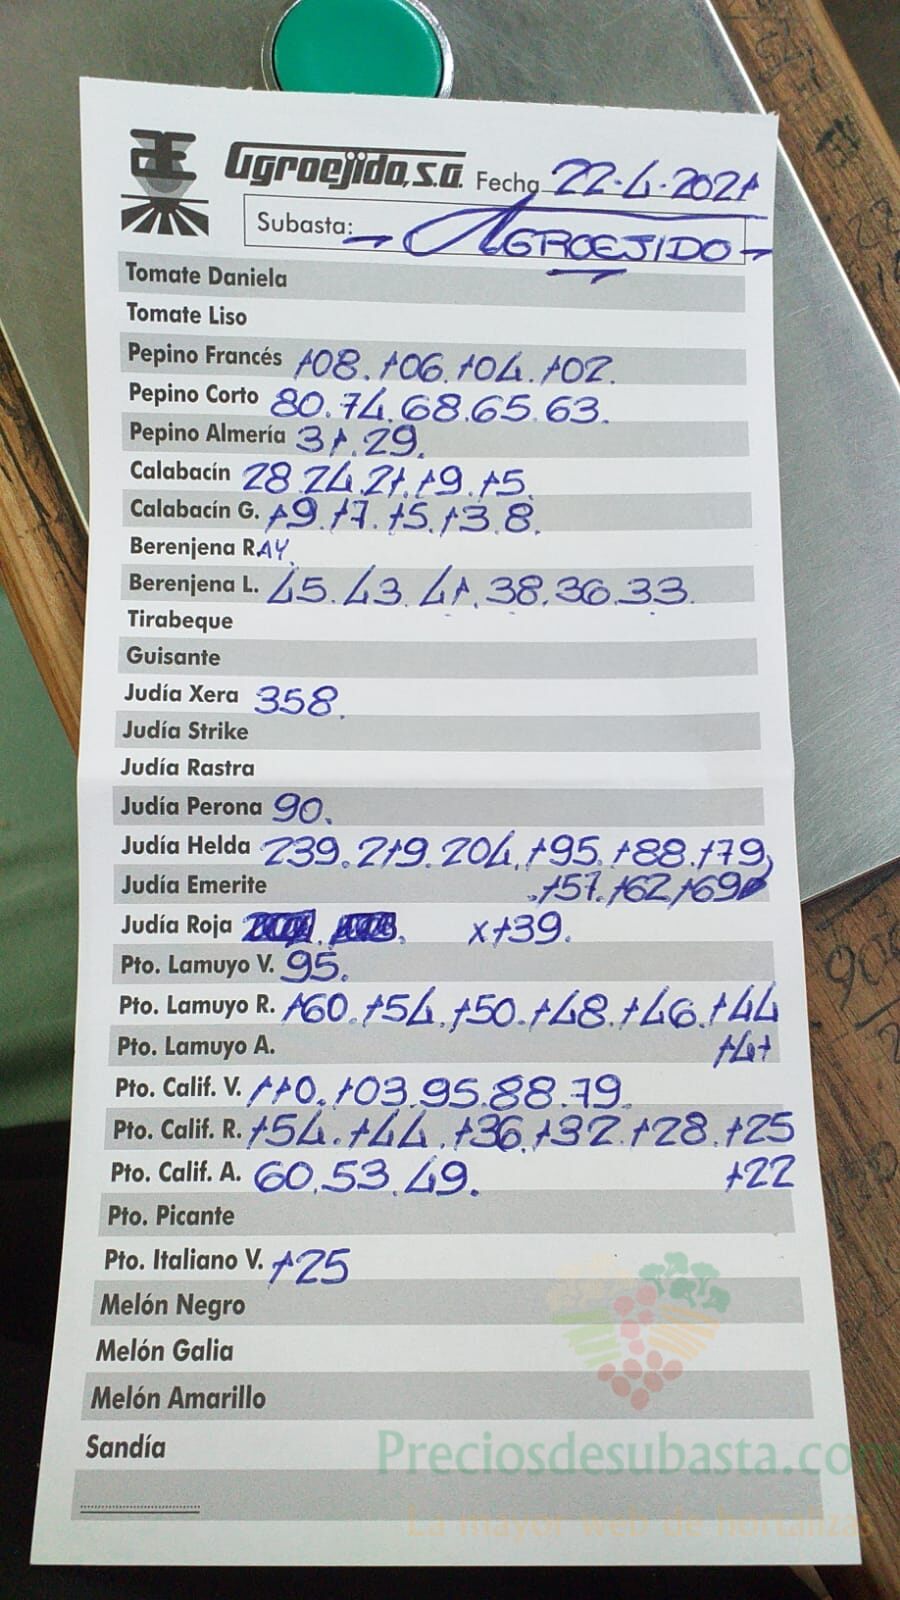 Agroejido, s.a. Fecha 22-4-2021
Subasta: - AGROEJIDO -
Tomate Daniela
Tomate Liso
Pepino Francés 108. 106. 104. 102.
Pepino Corto 80. 74. 68. 65. 63.
Pepino Almería 31. 29.
Calabacín 28 24. 21. 19. 15.
Calabacín G. 19. 17. 15. 13. 8.
Berenjena RAY.
Berenjena L. 45. 43. 41. 38. 36. 33.
Tirabeque
Guisante
Judía Xera 358.
Judía Strike
Judía Rastra
Judía Perona 90.
Judía Helda 239. 219. 204. 195. 188. 179,
Judía Emerite .157. 162 169
Judía Roja x139.
Pto. Lamuyo V. 95.
Pto. Lamuyo R. 160. 154. 150. 148. 146. 144
Pto. Lamuyo A. 141
Pto. Calif. V. 110. 103. 95. 88. 79.
Pto. Calif. R. 154. 144. 136. 132. 128. 125
Pto. Calif. A. 60. 53. 49. 122
Pto. Picante
Pto. Italiano V. 125
Melón Negro
Melón Galia
Melón Amarillo
Sandía
Preciosdesubasta.com
La mayor web de hortalizas